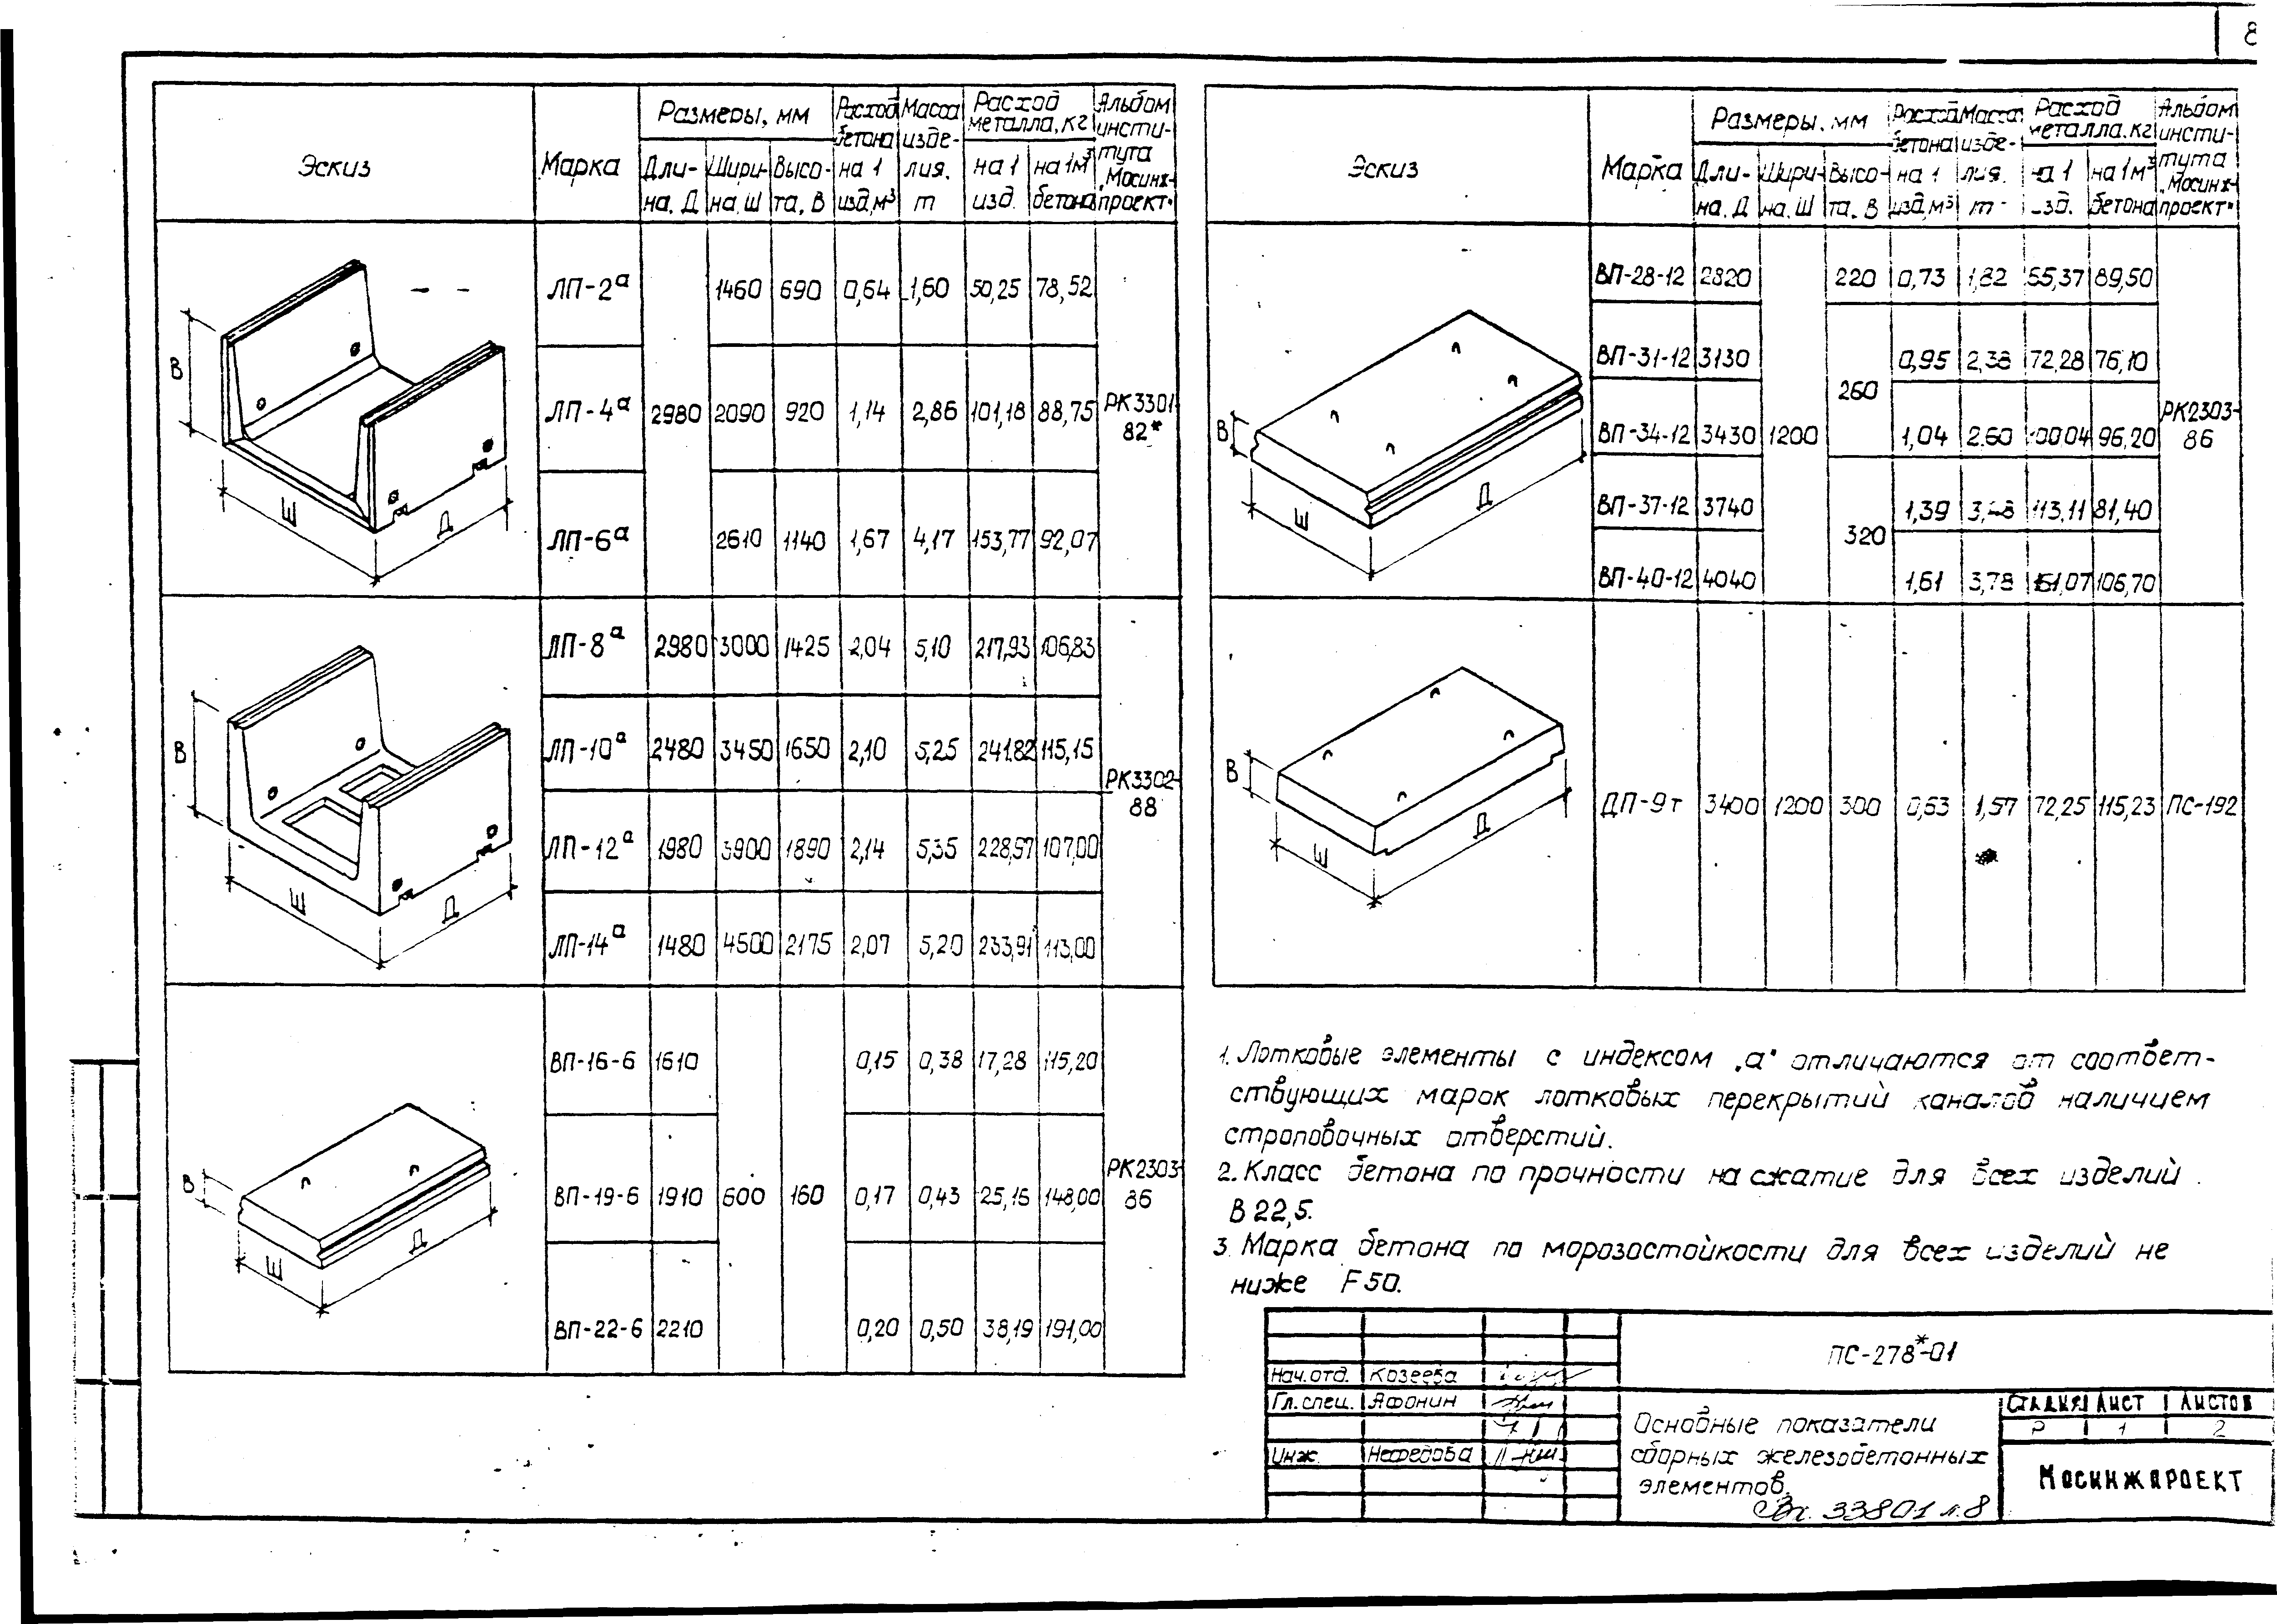 8
Эскиз Марка Размеры, мм Расход бетона на 1 изд, м³ Масса изделия, т Расход металла, кг Альбом института „Мосинжпроект"
Длина, Д Ширина, Ш Высота, В на 1 изд. на 1м³ бетона
ЛП-2а 1460 690 0,64 1,60 50,25 78,52
ЛП-4а 2980 2090 920 1,14 2,86 101,18 88,75 РК3301-82*
ЛП-6а 2610 1140 1,67 4,17 153,77 92,07
В Ш Д
ЛП-8а 2980 3000 1425 2,04 5,10 217,93 106,83
ЛП-10а 2480 3450 1650 2,10 5,25 241,82 115,15
РК3302-88
ЛП-12а 1980 3900 1890 2,14 5,35 228,97 107,00
ЛП-14а 1480 4500 2175 2,07 5,20 233,91 113,00
В Ш Д
ВП-16-6 1610 0,15 0,38 17,28 115,20
ВП-19-6 1910 600 160 0,17 0,43 25,16 148,00 РК2303-86
ВП-22-6 2210 0,20 0,50 38,19 191,00
В Ш Д
Эскиз Марка Размеры, мм Расход бетона на 1 изд, м³ Масса изделия, т Расход металла, кг Альбом института „Мосинжпроект"
Длина, Д Ширина, Ш Высота, В на 1 изд. на 1м³ бетона
ВП-28-12 2820 220 0,73 1,82 65,37 89,50
ВП-31-12 3130 0,95 2,38 72,28 76,10
260
ВП-34-12 3430 1200 1,04 2,60 100,04 96,20 РК2303-86
ВП-37-12 3740 1,39 3,48 113,11 81,40
320
ВП-40-12 4040 1,61 3,78 161,07 106,70
В Ш Д
ДП-9т 3400 1200 300 0,63 1,57 72,25 115,23 ПС-192
В Ш Д
1. Лотковые элементы с индексом „а" отличаются от соответ-
ствующих марок лотковых перекрытий каналов наличием
строповочных отверстий.
2. Класс бетона по прочности на сжатие для всех изделий
В 22,5.
3. Марка бетона по морозостойкости для всех изделий не
ниже F 50.
ПС-278*-01
Нач. отд. Козеева
Гл. спец. Афонин
Инж. Нефедова
Основные показатели
сборных железобетонных
элементов.
Стадия Лист Листов
Р 1 2
Мосинжпроект
33801 л.8